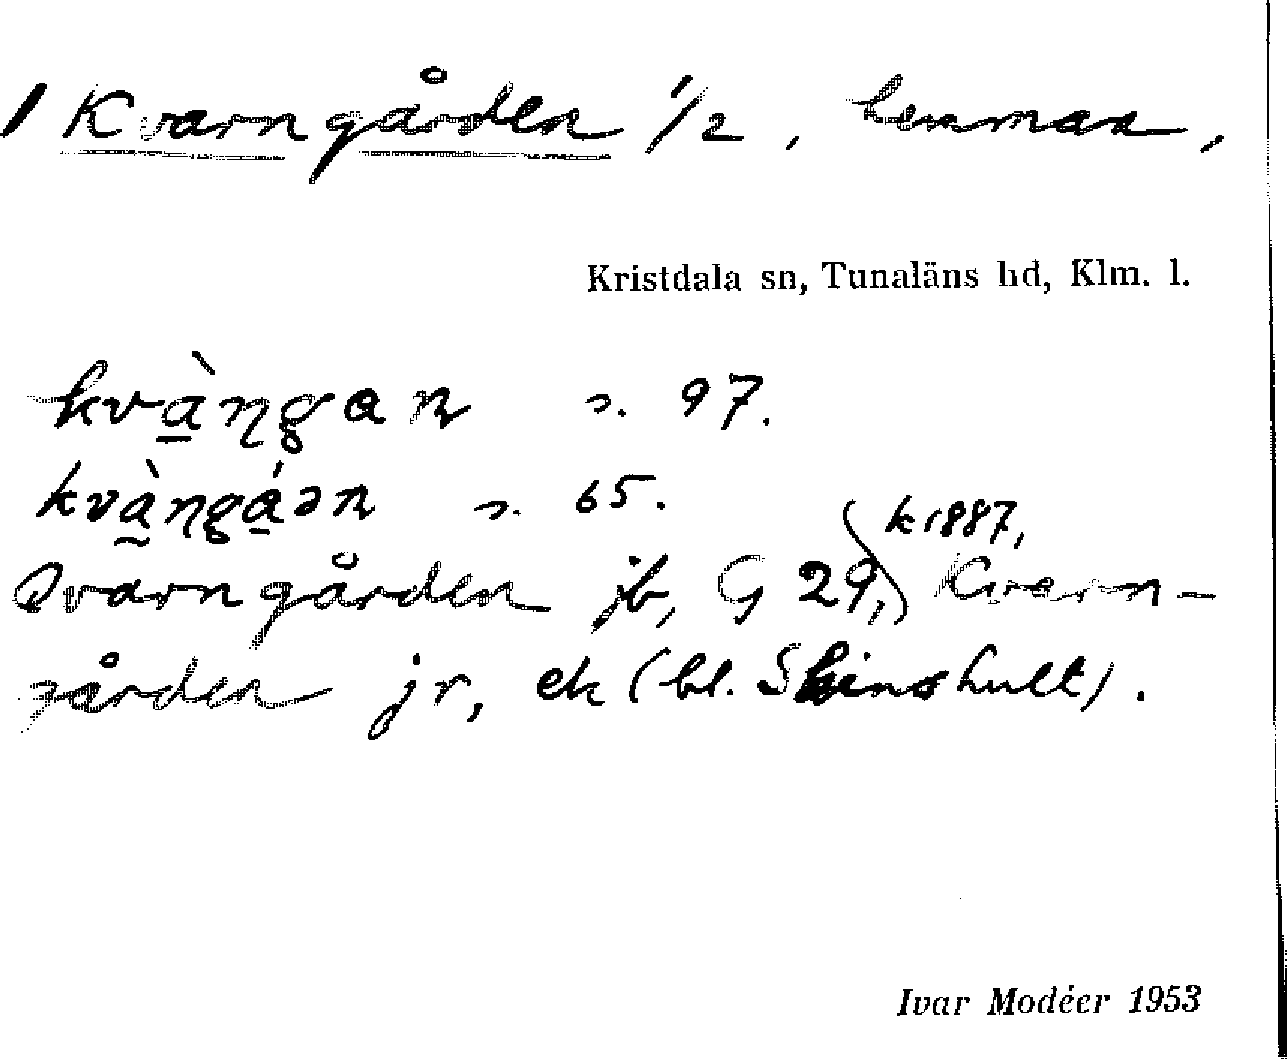 1 Kvarngården 1/2, hemman,
Kristdala sn, Tunaläns hd, Klm. l.
kvàŋgan s. 97.
kvàŋgáən s. 65.
k 1887,
Qvarngården jb, G 29, Kvarn-
gården jr, ek (bl. Skinshult).
Ivar Modéer 1953